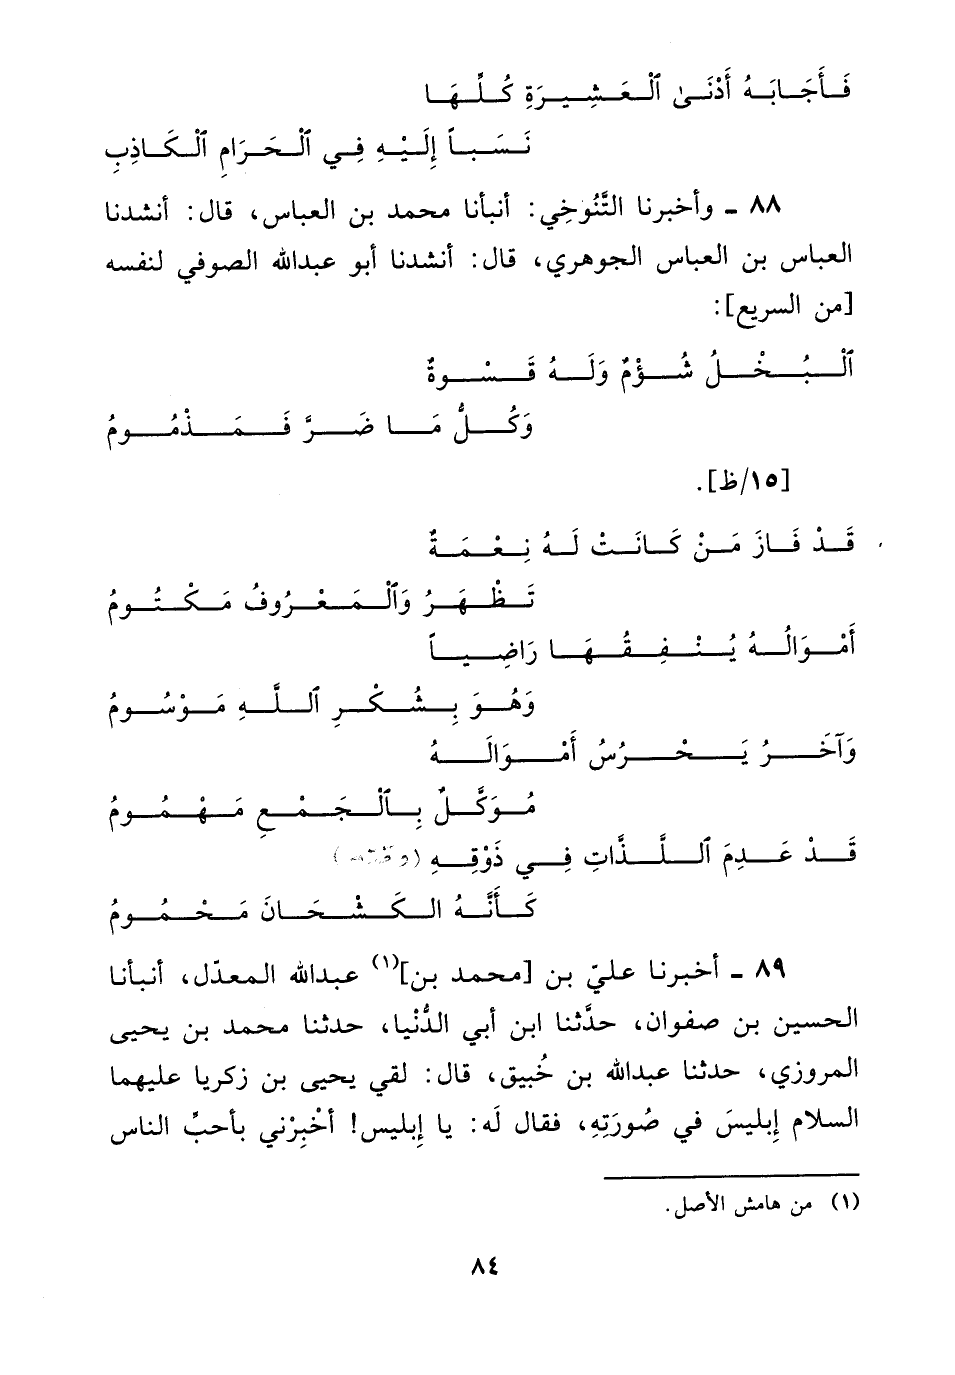 فَأَجَابَهُ أَدْنَىٰ ٱلْعَشِيرَةِ كُلِّهَا
نَسَباً إِلَيْهِ فِي ٱلْحَرَامِ ٱلْكَاذِبِ
٨٨ ـ وأخبرنا التَّنُوخِي: أنبأنا محمد بن العباس، قال: أنشدنا
العباس بن العباس الجوهري، قال: أنشدنا أبو عبدالله الصوفي لنفسه
[من السريع]:
ٱلْبُخْلُ شُؤْمٌ وَلَهُ قَسْوةٌ
وَكُلُّ مَا ضَرَّ فَمَذْمُومُ
[١٥/ظ].
قَدْ فَازَ مَنْ كَانَتْ لَهُ نِعْمَةٌ
تَظْهَرُ وَٱلْمَعْرُوفُ مَكْتُومُ
أَمْوَالُهُ يُنْفِقُهَا رَاضِياً
وَهُوَ بِشُكْرِ ٱللَّهِ مَوْسُومُ
وَآخَرُ يَحْرُسُ أَمْوَالَهُ
مُوَكَّلٌ بِٱلْجَمْعِ مَهْمُومُ
قَدْ عَدِمَ ٱللَّذَّاتِ فِي ذَوْقِهِ
كَأَنَّهُ الكَشْحَانَ مَحْمُومُ
٨٩ ـ أخبرنا عليّ بن [محمد بن](١) عبدالله المعدّل، أنبأنا
الحسين بن صفوان، حدَّثنا ابن أبي الدُّنْيا، حدثنا محمد بن يحيى
المروزي، حدثنا عبدالله بن خُبيق، قال: لقي يحيى بن زكريا عليهما
السلام إِبليسَ في صُورَتِهِ، فقال لَه: يا إِبليس! أخْبِرْني بأحبِّ الناس
(١) من هامش الأصل.
٨٤